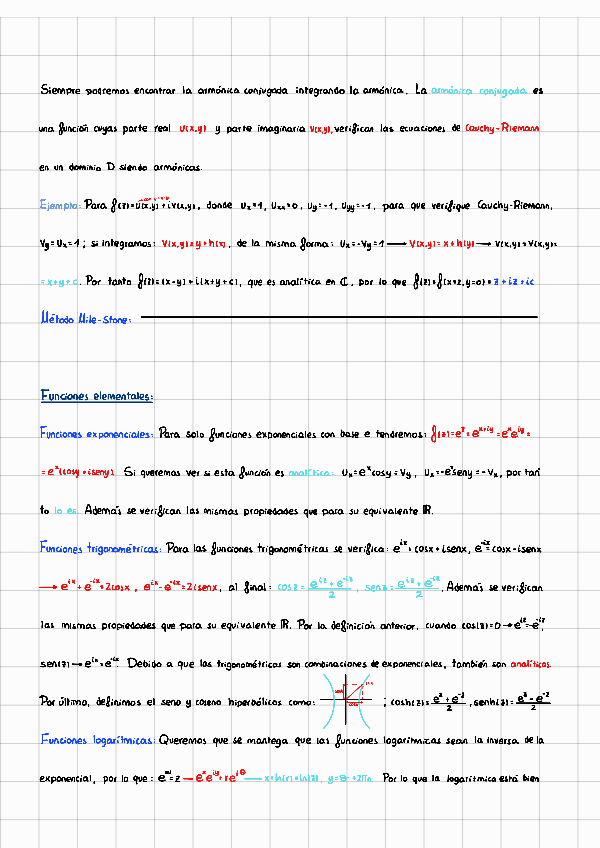 Siempre podremos encontrar la armónica conjugada integrando la armónica. La armónica conjugada es
una función cuyas parte real U(x,y) y parte imaginaria V(x,y), verifican las ecuaciones de Cauchy-Riemann
en un dominio D siendo armónicas.
Ejemplo: Para f(z)=U(x,y)+iV(x,y), donde Ux=1, Uxx=0, Uy=-1, Uyy=-1, para que verifique Cauchy-Riemann,
Vy=Ux=1; si integramos: V(x,y)=y+h(x), de la misma forma: Ux=-Vy=1 → V(x,y)=x+h(y) → V(x,y)=V(x,y)=
=x+y+c. Por tanto f(z)=(x-y)+i(x+y+c), que es analítica en ℂ, por lo que f(z)=f(x=z,y=0)=z+iz+ic
Método Mile-Stone:
Funciones elementales:
Funciones exponenciales: Para solo funciones exponenciales con base e tendremos: f(z)=e^z=e^{x+iy}=e^x e^{iy}=
=e^x(cosy+iseny) Si queremos ver si esta función es analítica: Ux=e^x cosy=Vy, Ux=-e^x seny=-Vx, por tan
to lo es. Además se verifican las mismas propiedades que para su equivalente ℝ.
Funciones trigonométricas: Para las funciones trigonométricas se verifica: e^{ix}=cosx+isenx, e^{-ix}=cosx-isenx
→ e^{ix}+e^{-ix}=2cosx, e^{ix}-e^{-ix}=2isenx, al final: cosz=(e^{iz}+e^{-iz})/2, senz=(e^{iz}+e^{-iz})/2. Además se verifican
las mismas propiedades que para su equivalente ℝ. Por la definición anterior, cuando cos(z)=0→e^{iz}=-e^{-iz},
sen(z)→e^{ix}=e^{-ix}. Debido a que las trigonométricas son combinaciones de exponenciales, también son analíticas
Por último, definimos el seno y coseno hiperbólicos como: ; cosh(z)=(e^z+e^{-z})/2, senh(z)=(e^z-e^{-z})/2
Funciones logarítmicas: Queremos que se mantega que las funciones logarítmicas sean la inversa de la
exponencial, por lo que: e^w=z → e^x e^{iy}=re^{iθ} → x=ln(r)=ln|z|, y=θ+2πn Por lo que la logarítmica está bien